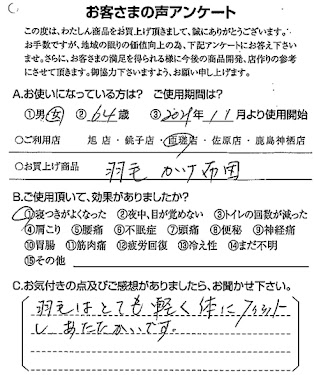 お客さまの声アンケート
この度は、わたしん商品をお買上げ頂きまして、誠にありがとうございます。
お手数ですが、地域の限りの価値向上の為、下記アンケートにお答え下さい
ませ。さらに、お客さまの満足を得られる様に今後の商品開発、店作りの参考
にさせて頂きます。御協力下さいますよう、お願い申し上げます。
A.お使いになっている方は? ご使用期間は?
①男・女 ②64歳 ③2021年11月より使用開始
○ご利用店 旭店・銚子店・匝瑳店・佐原店・鹿島神栖店
○お買上げ商品 羽毛かけ布団
B.ご使用頂いて、効果がありましたか?
①寝つきがよくなった ②夜中、目が覚めない ③トイレの回数が減った
④肩こり ⑤腰痛 ⑥不眠症 ⑦頭痛 ⑧便秘 ⑨神経痛
⑩胃腸 ⑪筋肉痛 ⑫疲労回復 ⑬冷え性 ⑭まだ不明
⑮その他
C.お気付きの点及びご感想がありましたら、お聞かせ下さい。
羽毛はとても軽く体にフィット
しあたたかいです。